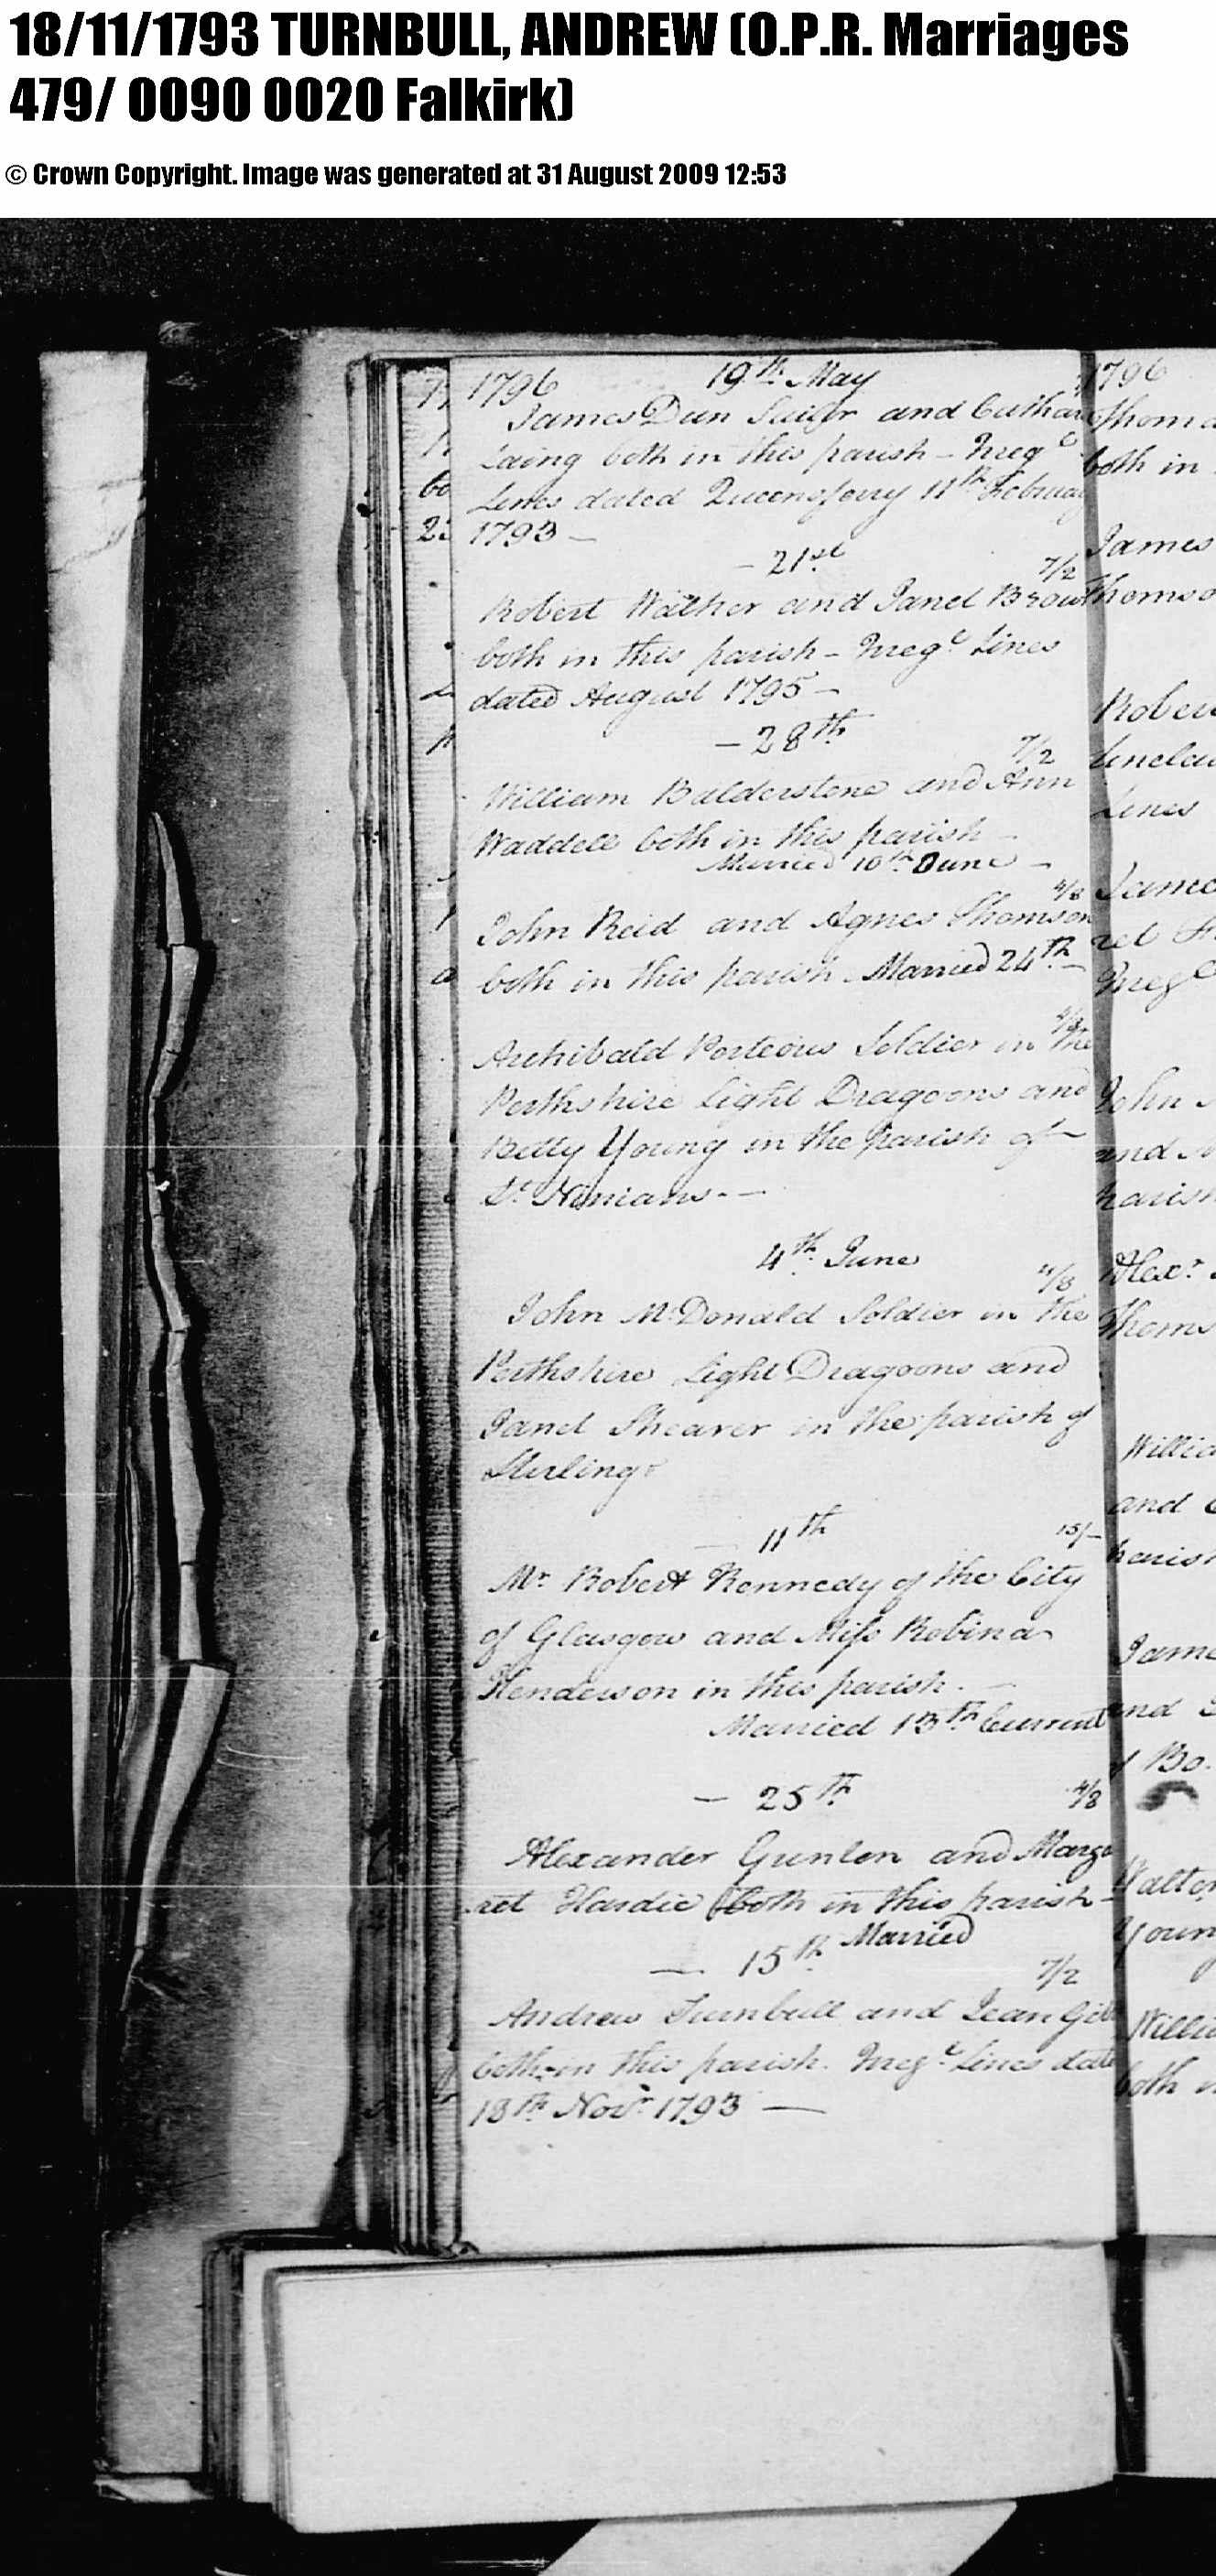 18/11/1793 TURNBULL, ANDREW (O.P.R. Marriages
479/ 0090 0020 Falkirk)
© Crown Copyright. Image was generated at 31 August 2009 12:53
1796 19th May
James Dun Sailor and Cathar
Laing both in this parish - Irregr
Lines dated Queensferry 11th Februay
1793 -
- 21st
7/2
Robert Walker and Janet Brown
both in this parish - Irregr Lines
dated August 1795 -
- 28th
7/2
William Balderstone and Ann
Waddell both in this parish -
Married 10th June -
4/8
John Reid and Agnes Thomson
both in this parish Married 24th -
4/8
Archibald Porteous Soldier in the
Perthshire Light Dragoons and
Betty Young in the parish of
St Ninians - -
4th June
4/8
John McDonald Soldier in the
Perthshire Light Dragoons and
Janet Shearer in the parish of
Sterling
- 11th
15/-
Mr Robert Kennedy of the City
of Glasgow and Miss Robina
Henderson in this parish. -
Married 13th Current
- 25th
4/8
Alexander Gunlen and Marga
ret Hardie both in this parish -
Married
- 15th
7/2
Andrew Turnbull and Jean Gib
both in this parish. Irregr Lines date
18th Novr 1793 -
1796
Thoma
both in
James
Thomso
Rober
Lines
Jame
ret
Irregr
John
and
parish
Alexr
Thoms
Willia
and
parish
Jame
and
of Bo.
Walter
Youn
Willia
both